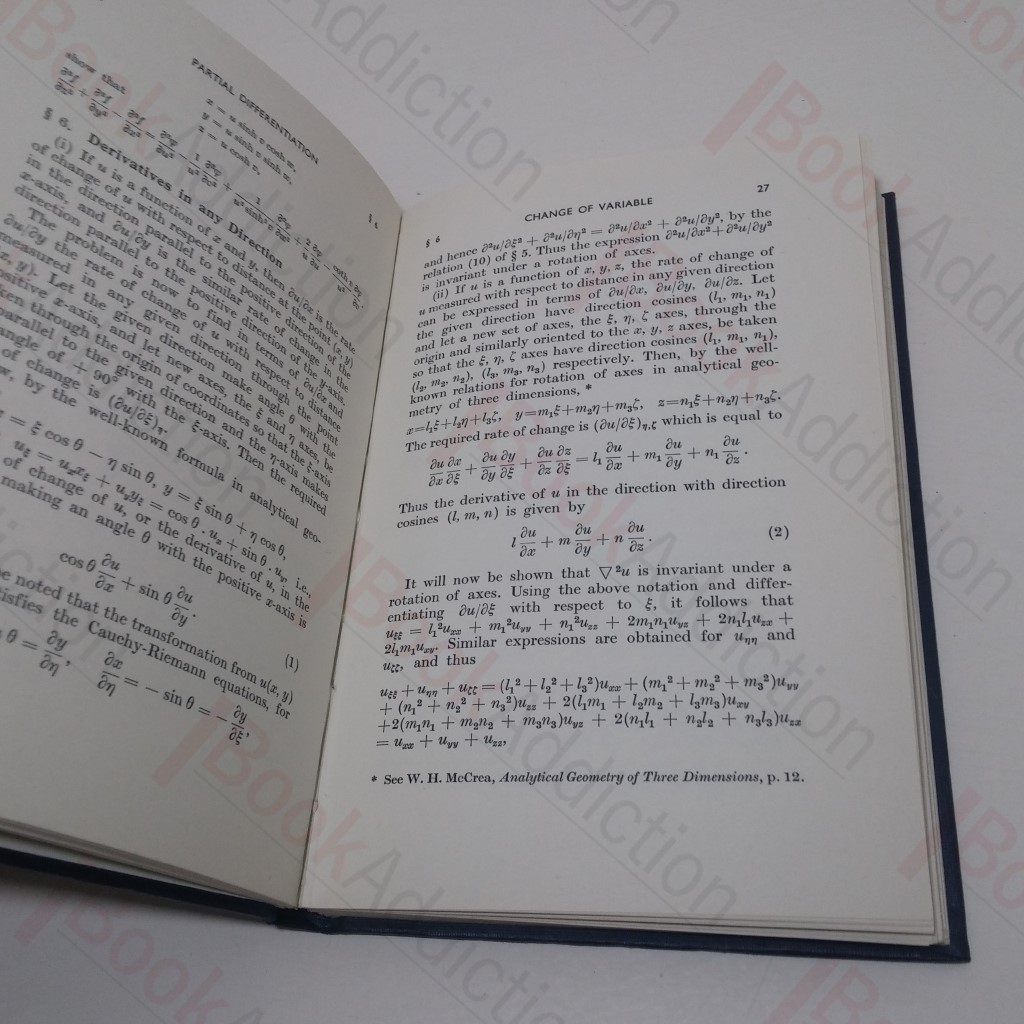 PARTIAL DIFFERENTIATION
§ 6
x = u sinh v cosh w,
y = u sinh v sinh w,
z = u cosh v,
show that
§ 6. Derivatives in any Direction
(i) If u is a function of x and y, then ∂u/∂x is the rate
of change of u with respect to distance at the point (x, y)
in the direction parallel to the positive direction of the
x-axis, and ∂u/∂y is the similar rate of change in the
direction parallel to the positive direction of the y-axis.
The problem is now to find in terms of ∂u/∂x and
∂u/∂y the rate of change of u with respect to distance
measured in any given direction through the point
(x, y). Let the given direction make angle θ with the
positive x-axis, and let new axes, the ξ and η axes, be
taken through the origin of coordinates so that the ξ-axis
parallel to the given direction and the η-axis makes
angle of + 90° with the ξ-axis. Then the required
of change is (∂u/∂ξ)η.
by the well-known formula in analytical geo-
= ξ cos θ − η sin θ, y = ξ sin θ + η cos θ,
uξ = uxxξ + uyyξ = cos θ . ux + sin θ . uy, i.e.,
of change of u, or the derivative of u, in the
making an angle θ with the positive x-axis is
cos θ ∂u/∂x + sin θ ∂u/∂y. (1)
be noted that the transformation from u(x, y)
satisfies the Cauchy-Riemann equations, for
θ = ∂y/∂η, ∂x/∂η = − sin θ = − ∂y/∂ξ,
§ 6 CHANGE OF VARIABLE 27
and hence ∂²u/∂ξ² + ∂²u/∂η² = ∂²u/∂x² + ∂²u/∂y², by the
relation (10) of § 5. Thus the expression ∂²u/∂x²+∂²u/∂y²
is invariant under a rotation of axes.
(ii) If u is a function of x, y, z, the rate of change of
u measured with respect to distance in any given direction
can be expressed in terms of ∂u/∂x, ∂u/∂y, ∂u/∂z. Let
the given direction have direction cosines (l₁, m₁, n₁)
and let a new set of axes, the ξ, η, ζ axes, through the
origin and similarly oriented to the x, y, z axes, be taken
so that the ξ, η, ζ axes have direction cosines (l₁, m₁, n₁),
(l₂, m₂, n₂), (l₃, m₃, n₃) respectively. Then, by the well-
known relations for rotation of axes in analytical geo-
metry of three dimensions, *
x=l₁ξ+l₂η+l₃ζ, y=m₁ξ+m₂η+m₃ζ, z=n₁ξ+n₂η+n₃ζ.
The required rate of change is (∂u/∂ξ)η,ζ which is equal to
∂u/∂x ∂x/∂ξ + ∂u/∂y ∂y/∂ξ + ∂u/∂z ∂z/∂ξ = l₁ ∂u/∂x + m₁ ∂u/∂y + n₁ ∂u/∂z .
Thus the derivative of u in the direction with direction
cosines (l, m, n) is given by
l ∂u/∂x + m ∂u/∂y + n ∂u/∂z . (2)
It will now be shown that ∇²u is invariant under a
rotation of axes. Using the above notation and differ-
entiating ∂u/∂ξ with respect to ξ, it follows that
uξξ = l₁²uxx + m₁²uyy + n₁²uzz + 2m₁n₁uyz + 2n₁l₁uzx +
2l₁m₁uxy. Similar expressions are obtained for uηη and
uζζ, and thus
uξξ + uηη + uζζ = (l₁² + l₂² + l₃²)uxx + (m₁² + m₂² + m₃²)uyy
+ (n₁² + n₂² + n₃²)uzz + 2(l₁m₁ + l₂m₂ + l₃m₃)uxy
+2(m₁n₁ + m₂n₂ + m₃n₃)uyz + 2(n₁l₁ + n₂l₂ + n₃l₃)uzx
= uxx + uyy + uzz,
* See W. H. McCrea, Analytical Geometry of Three Dimensions, p. 12.
BookAddiction